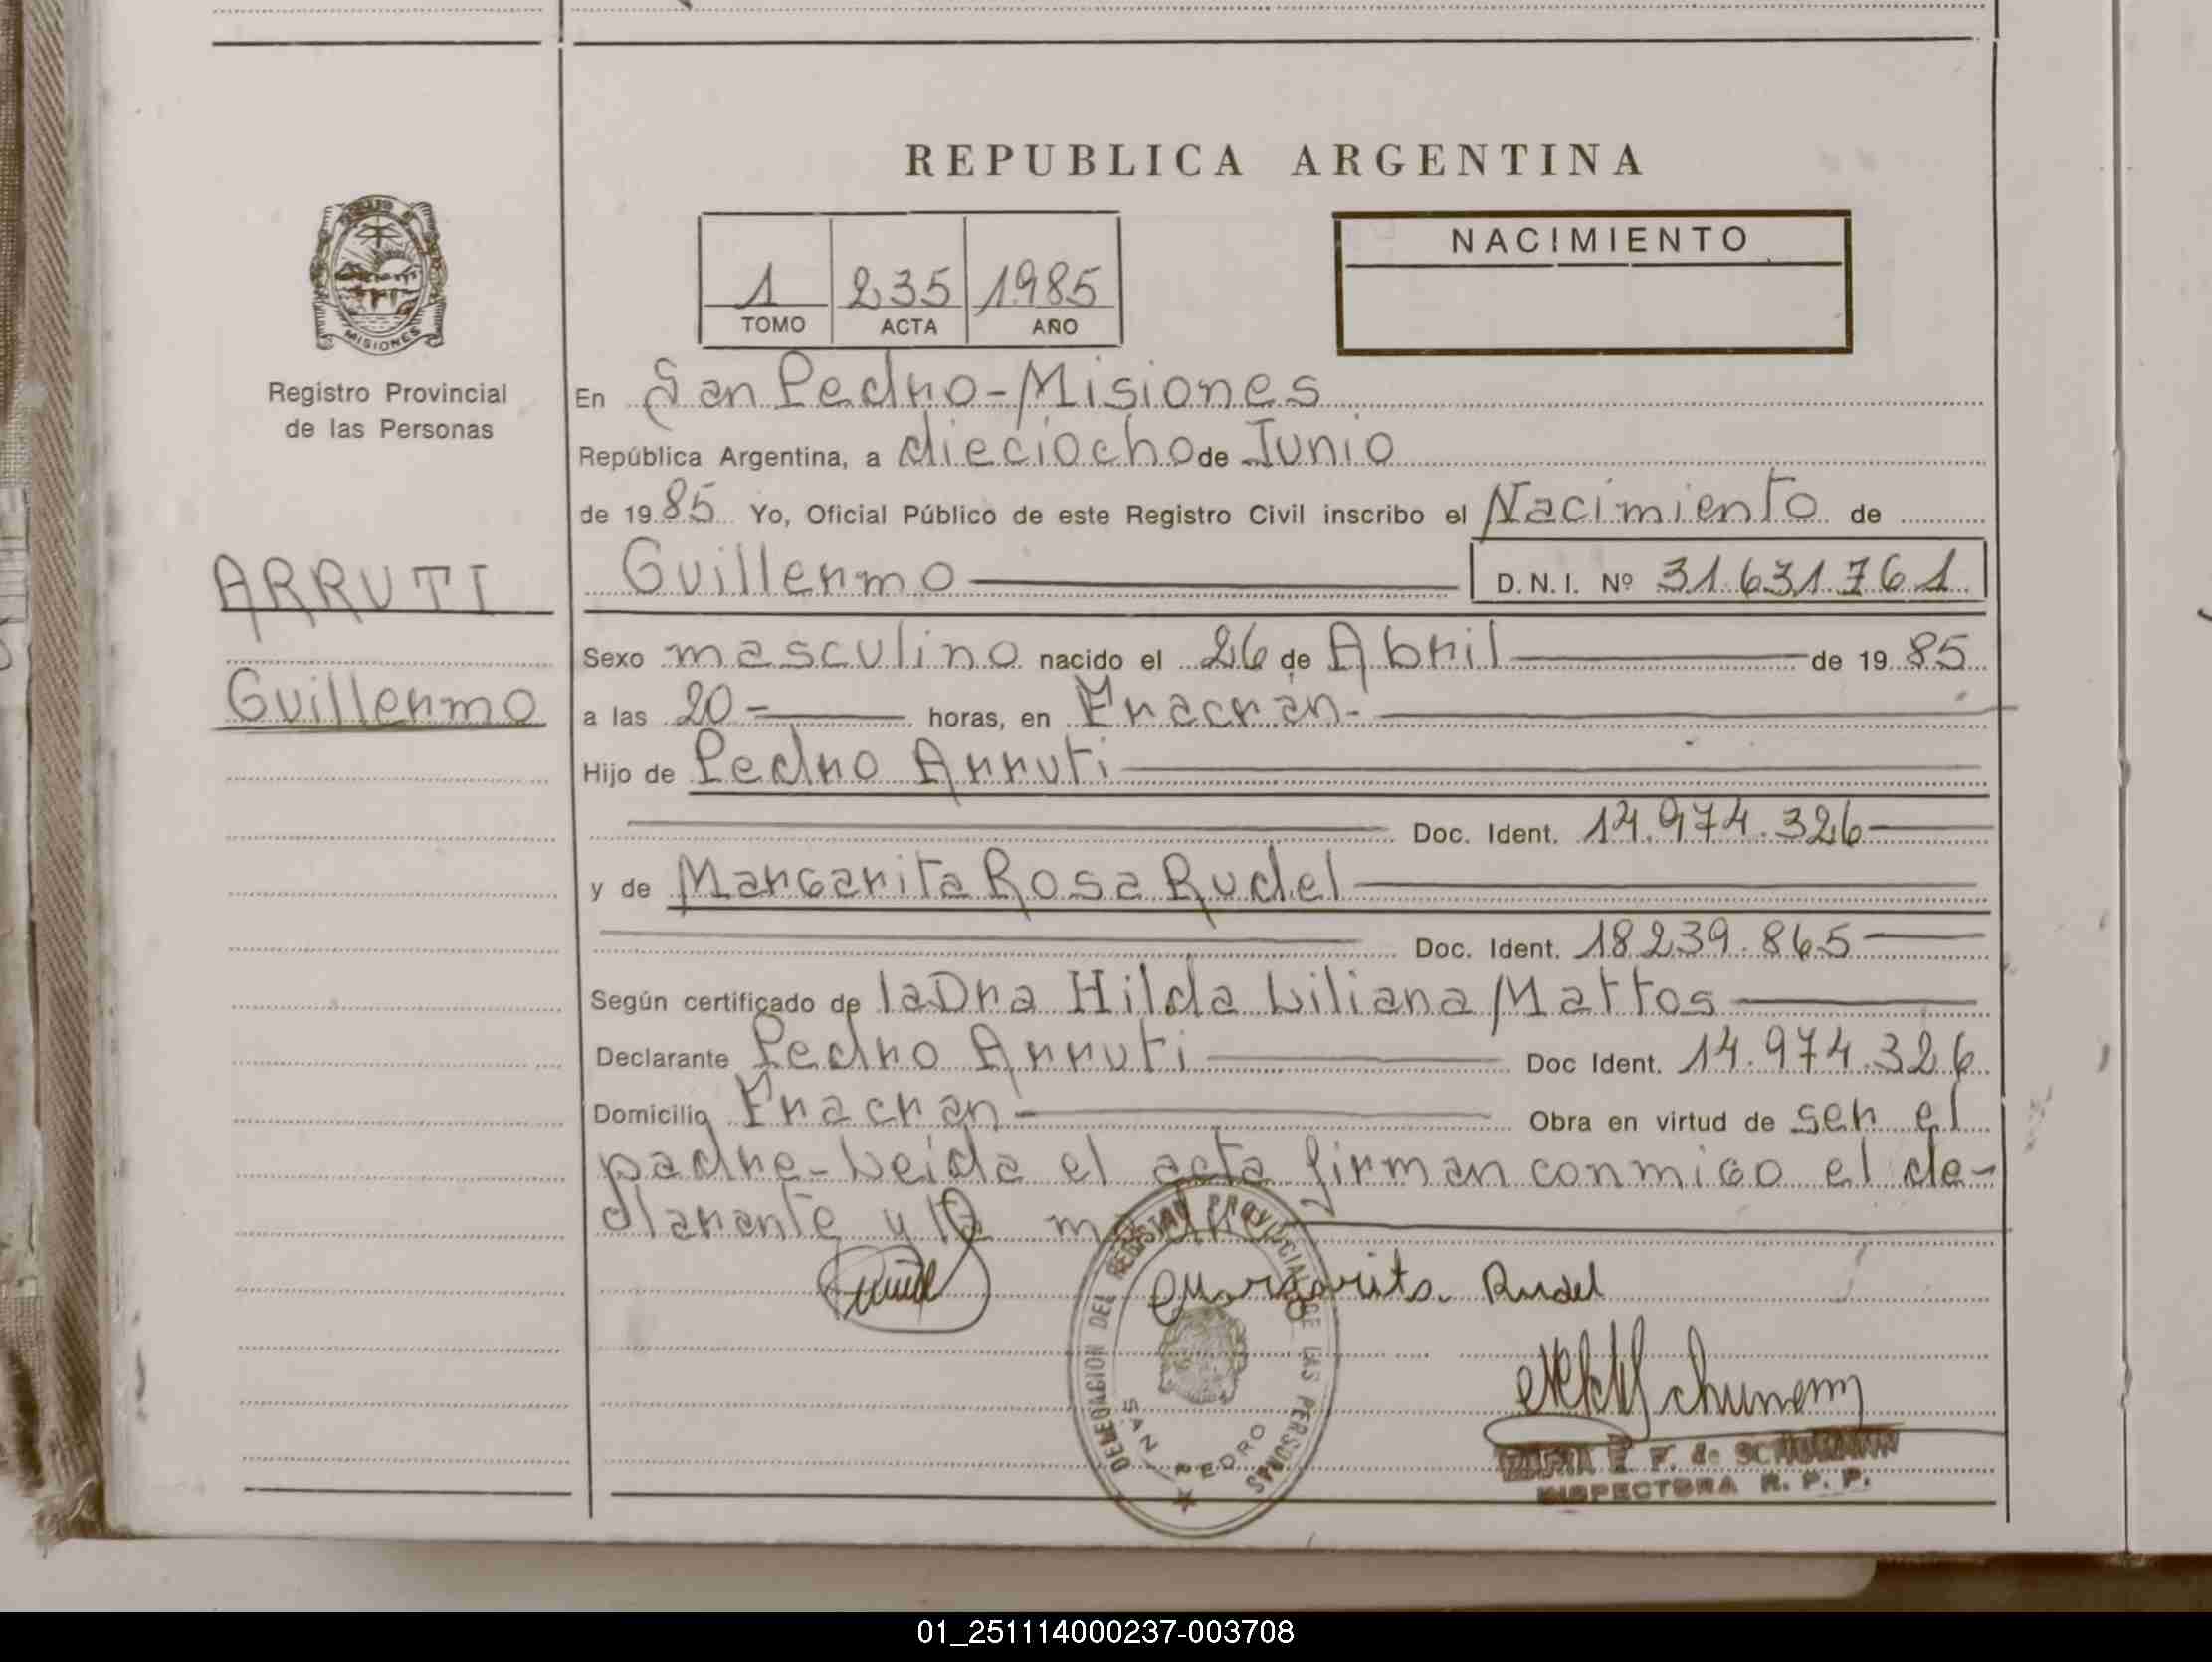 REPUBLICA ARGENTINA
MISIONES
Registro Provincial
de las Personas
1 235 1985
TOMO ACTA AÑO
NACIMIENTO
En San Pedro-Misiones
República Argentina, a dieciocho de Junio
de 1985 Yo, Oficial Público de este Registro Civil inscribo el Nacimiento de
ARRUTI
Guillermo
Guillermo D.N.I. Nº 31.631.761
Sexo masculino nacido el 26 de Abril de 1985
a las 20- horas, en Fracrán-
Hijo de Pedro Arruti
Doc. Ident. 14.974.326
y de Margarita Rosa Rudel
Doc. Ident. 18239.865
Según certificado de la Dra Hilda Liliana Mattos
Declarante Pedro Arruti Doc Ident. 14.974.326
Domicilio Fracran Obra en virtud de ser el
padre-Leida el acta firman conmigo el de-
clarante y la madre
Margarita Rudel
DELEGACION DEL REGISTRO PROVINCIAL DE LAS PERSONAS
SAN PEDRO
F. de SCHUMANN
INSPECTORA R. P. P.
01_251114000237-003708